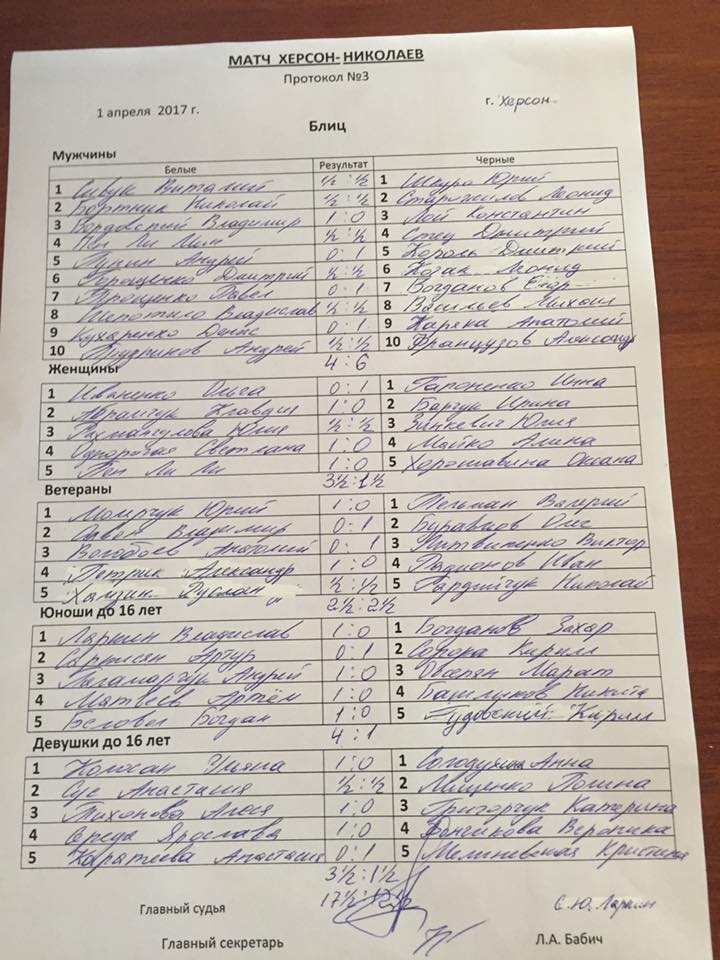 МАТЧ ХЕРСОН- НИКОЛАЕВ
Протокол №3
1 апреля 2017 г. г. Херсон
Блиц
Мужчины
Белые Результат Черные
1 Сивук Виталий ½ : ½ 1 Шкуро Юрий
2 Бортник Николай ½ : ½ 2 Старожилов Леонид
3 Бордовский Владимир 1 : 0 3 Лой Константин
4 ½ : ½ 4 Стец Дмитрий
5 Андрей 0 : 1 5 Король Дмитрий
6 Геращенко Дмитрий ½ : ½ 6 Козак Леонид
7 Прощенко Павел 0 : 1 7 Богданов Егор
8 Шепотило Владислав ½ : ½ 8 Васильев Михаил
9 Кухаренко Денис 0 : 1 9 Каряка Анатолий
10 Андрей ½ : ½ 10 Французов Александр
4 : 6
Женщины
1 Иваненко Ольга 0 : 1 1 Гапоненко Инна
2 Клавдия 1 : 0 2 Барчук Ирина
3 Юлия ½ : ½ 3 Зинкевич Юлия
4 Однорогая Светлана 1 : 0 4 Майко Алина
5 Тен Ли Ли 1 : 0 5 Хорошавина Оксана
3½ : 1½
Ветераны
1 Юрий 1 : 0 1 Гельман Валерий
2 Владимир 0 : 1 2 Олег
3 Анатолий 0 : 1 3 Литвиненко Виктор
4 Петрик Александр 1 : 0 4 Радионов Иван
5 Хамзин Руслан ½ : ½ 5 Николай
2½ : 2½
Юноши до 16 лет
1 Ларкин Владислав 1 : 0 1 Богданов Захар
2 Саркисян Артур 0 : 1 2 Сорока Кирилл
3 Паламарчук Андрей 1 : 0 3 Овакян Марат
4 Матвеев Артём 1 : 0 4 Башлыков Никита
5 Беловол Богдан 1 : 0 5 Кирилл
4 : 1
Девушки до 16 лет
1 Колосан Ульяна 1 : 0 1 Анна
2 Сус Анастасия ½ : ½ 2 Мищенко Полина
3 Тихонова Алеся 1 : 0 3 Григорчук Катерина
4 Середа Ярослава 1 : 0 4 Фончикова Вероника
5 Каратеева Анастасия 0 : 1 5 Мелиневская Кристина
3½ : 1½
17½ : 12½
Главный судья Е. Ю. Ларкин
Главный секретарь Л.А. Бабич